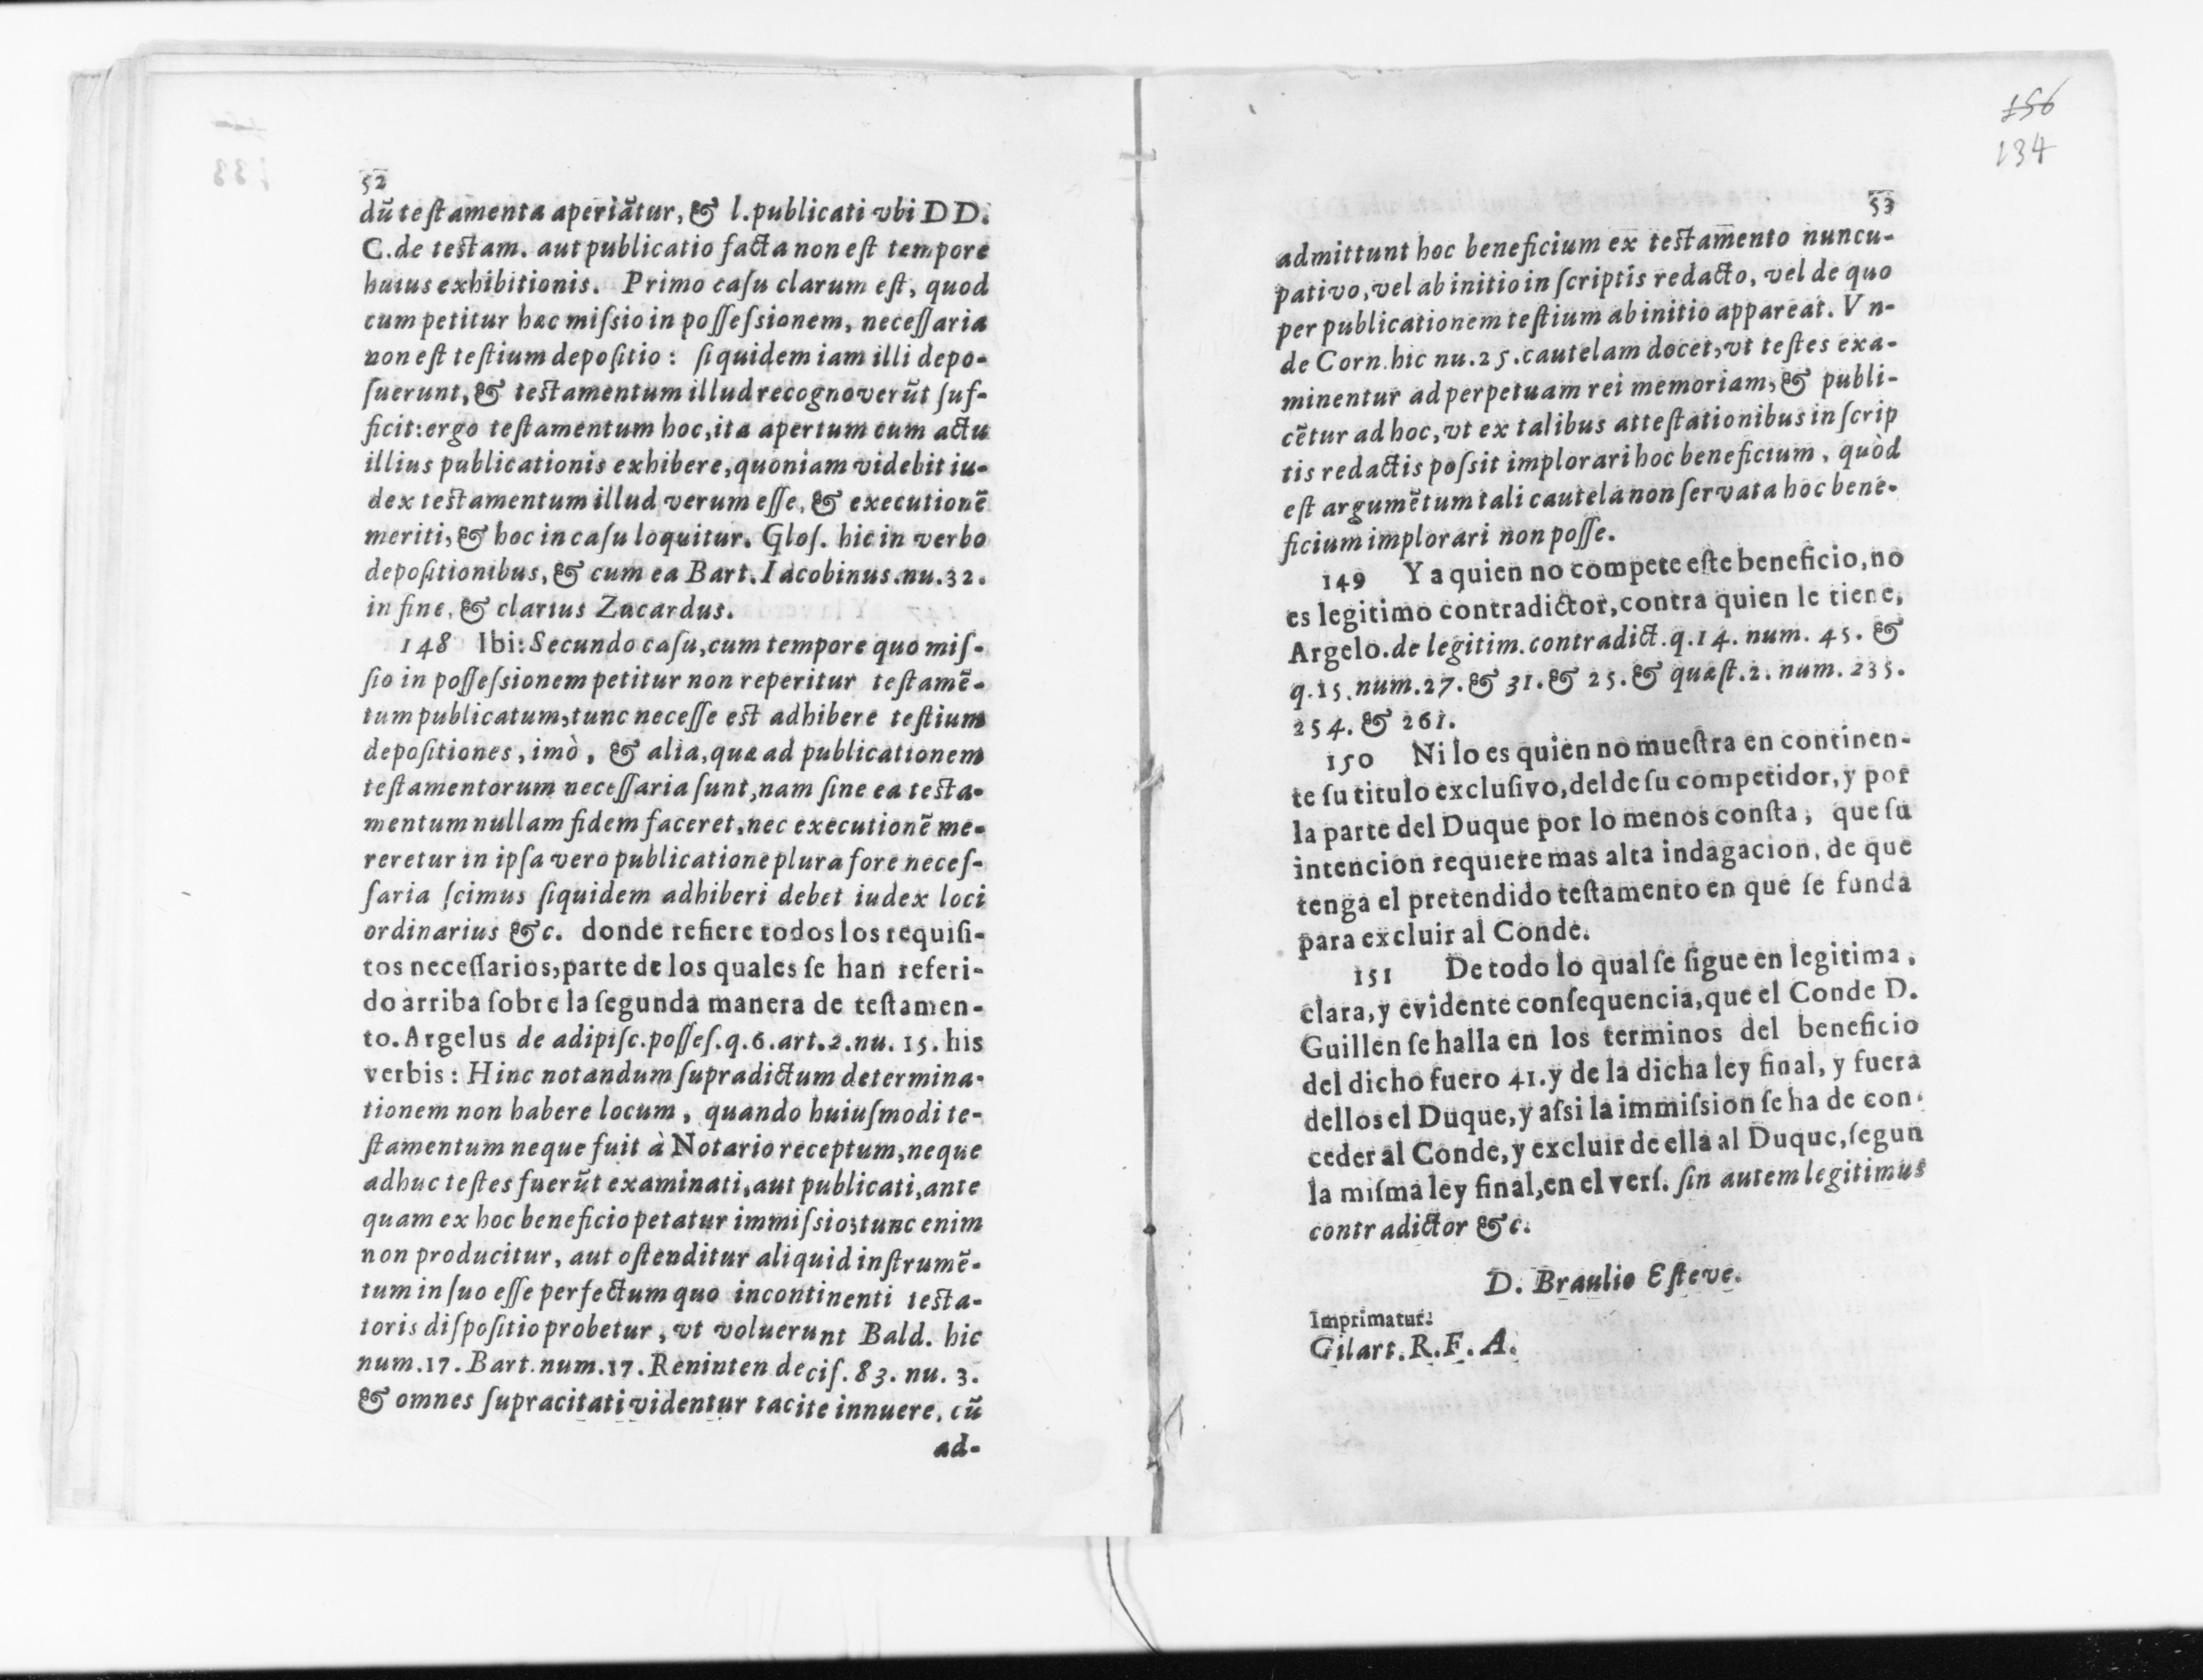 52
dũ testamenta aperiãtur, & l. publicati vbi DD.
C. de testam. aut publicatio facta non est tempore
huius exhibitionis. Primo casu clarum est, quod
cum petitur hæc missio in possessionem, necessaria
non est testium depositio: siquidem iam illi depo-
suerunt, & testamentum illud recognoverũt suf-
ficit: ergo testamentum hoc, ita apertum cum actu
illius publicationis exhibere, quoniam videbit iu-
dex testamentum illud verum esse, & executionẽ
meriti, & hoc in casu loquitur. Glos. hic in verbo
depositionibus, & cum ea Bart. Iacobinus. nu. 32.
in fine, & clarius Zucardus.
148 Ibi: Secundo casu, cum tempore quo mis-
sio in possessionem petitur non reperitur testamẽ-
tum publicatum, tunc necesse est adhibere testium
depositiones, imò, & alia, quæ ad publicationem
testamentorum necessaria sunt, nam sine ea testa-
mentum nullam fidem faceret, nec executionẽ me-
reretur in ipsa vero publicatione plura fore neces-
saria scimus siquidem adhiberi debet iudex loci
ordinarius &c. donde refiere todos los requisi-
tos necessarios, parte de los quales se han referi-
do arriba sobre la segunda manera de testamen-
to. Argelus de adipisc. posses. q. 6. art. 2. nu. 15. his
verbis: Hinc notandum supradictum determina-
tionem non habere locum, quando huiusmodi te-
stamentum neque fuit à Notario receptum, neque
adhuc testes fuerũt examinati, aut publicati, ante
quam ex hoc beneficio petatur immissio; tunc enim
non producitur, aut ostenditur aliquid instrumẽ-
tum in suo esse perfectum quo incontinenti testa-
toris dispositio probetur, vt voluerunt Bald. hic
num. 17. Bart. num. 17. Reninten decis. 83. nu. 3.
& omnes supracitati videntur tacite innuere, cũ
ad-
156
134
53
admittunt hoc beneficium ex testamento nuncu-
pativo, vel ab initio in scriptis redacto, vel de quo
per publicationem testium ab initio appareat. Vn-
de Corn. hic nu. 25. cautelam docet, vt testes exa-
minentur ad perpetuam rei memoriam, & publi-
cẽtur ad hoc, vt ex talibus attestationibus in scrip
tis redactis possit implorari hoc beneficium, quòd
est argumẽtum tali cautela non servata hoc bene-
ficium implorari non posse.
149 Y a quien no compete este beneficio, no
es legitimo contradictor, contra quien le tiene,
Argelo. de legitim. contradict. q. 14. num. 45. &
q. 15. num. 27. & 31. & 25. & quæst. 2. num. 235.
254. & 261.
150 Ni lo es quien no muestra en continen-
te su titulo exclusivo, del de su competidor, y por
la parte del Duque por lo menos consta, que su
intencion requiere mas alta indagacion, de que
tenga el pretendido testamento en que se funda
para excluir al Conde.
151 De todo lo qual se sigue en legitima,
clara, y evidente consequencia, que el Conde D.
Guillen se halla en los terminos del beneficio
del dicho fuero 41. y de la dicha ley final, y fuera
dellos el Duque, y assi la immission se ha de con-
ceder al Conde, y excluir de ella al Duque, segun
la misma ley final, en el vers. sin autem legitimus
contradictor &c.
D. Braulio Esteve.
Imprimatur.
Gilart. R. F. A.